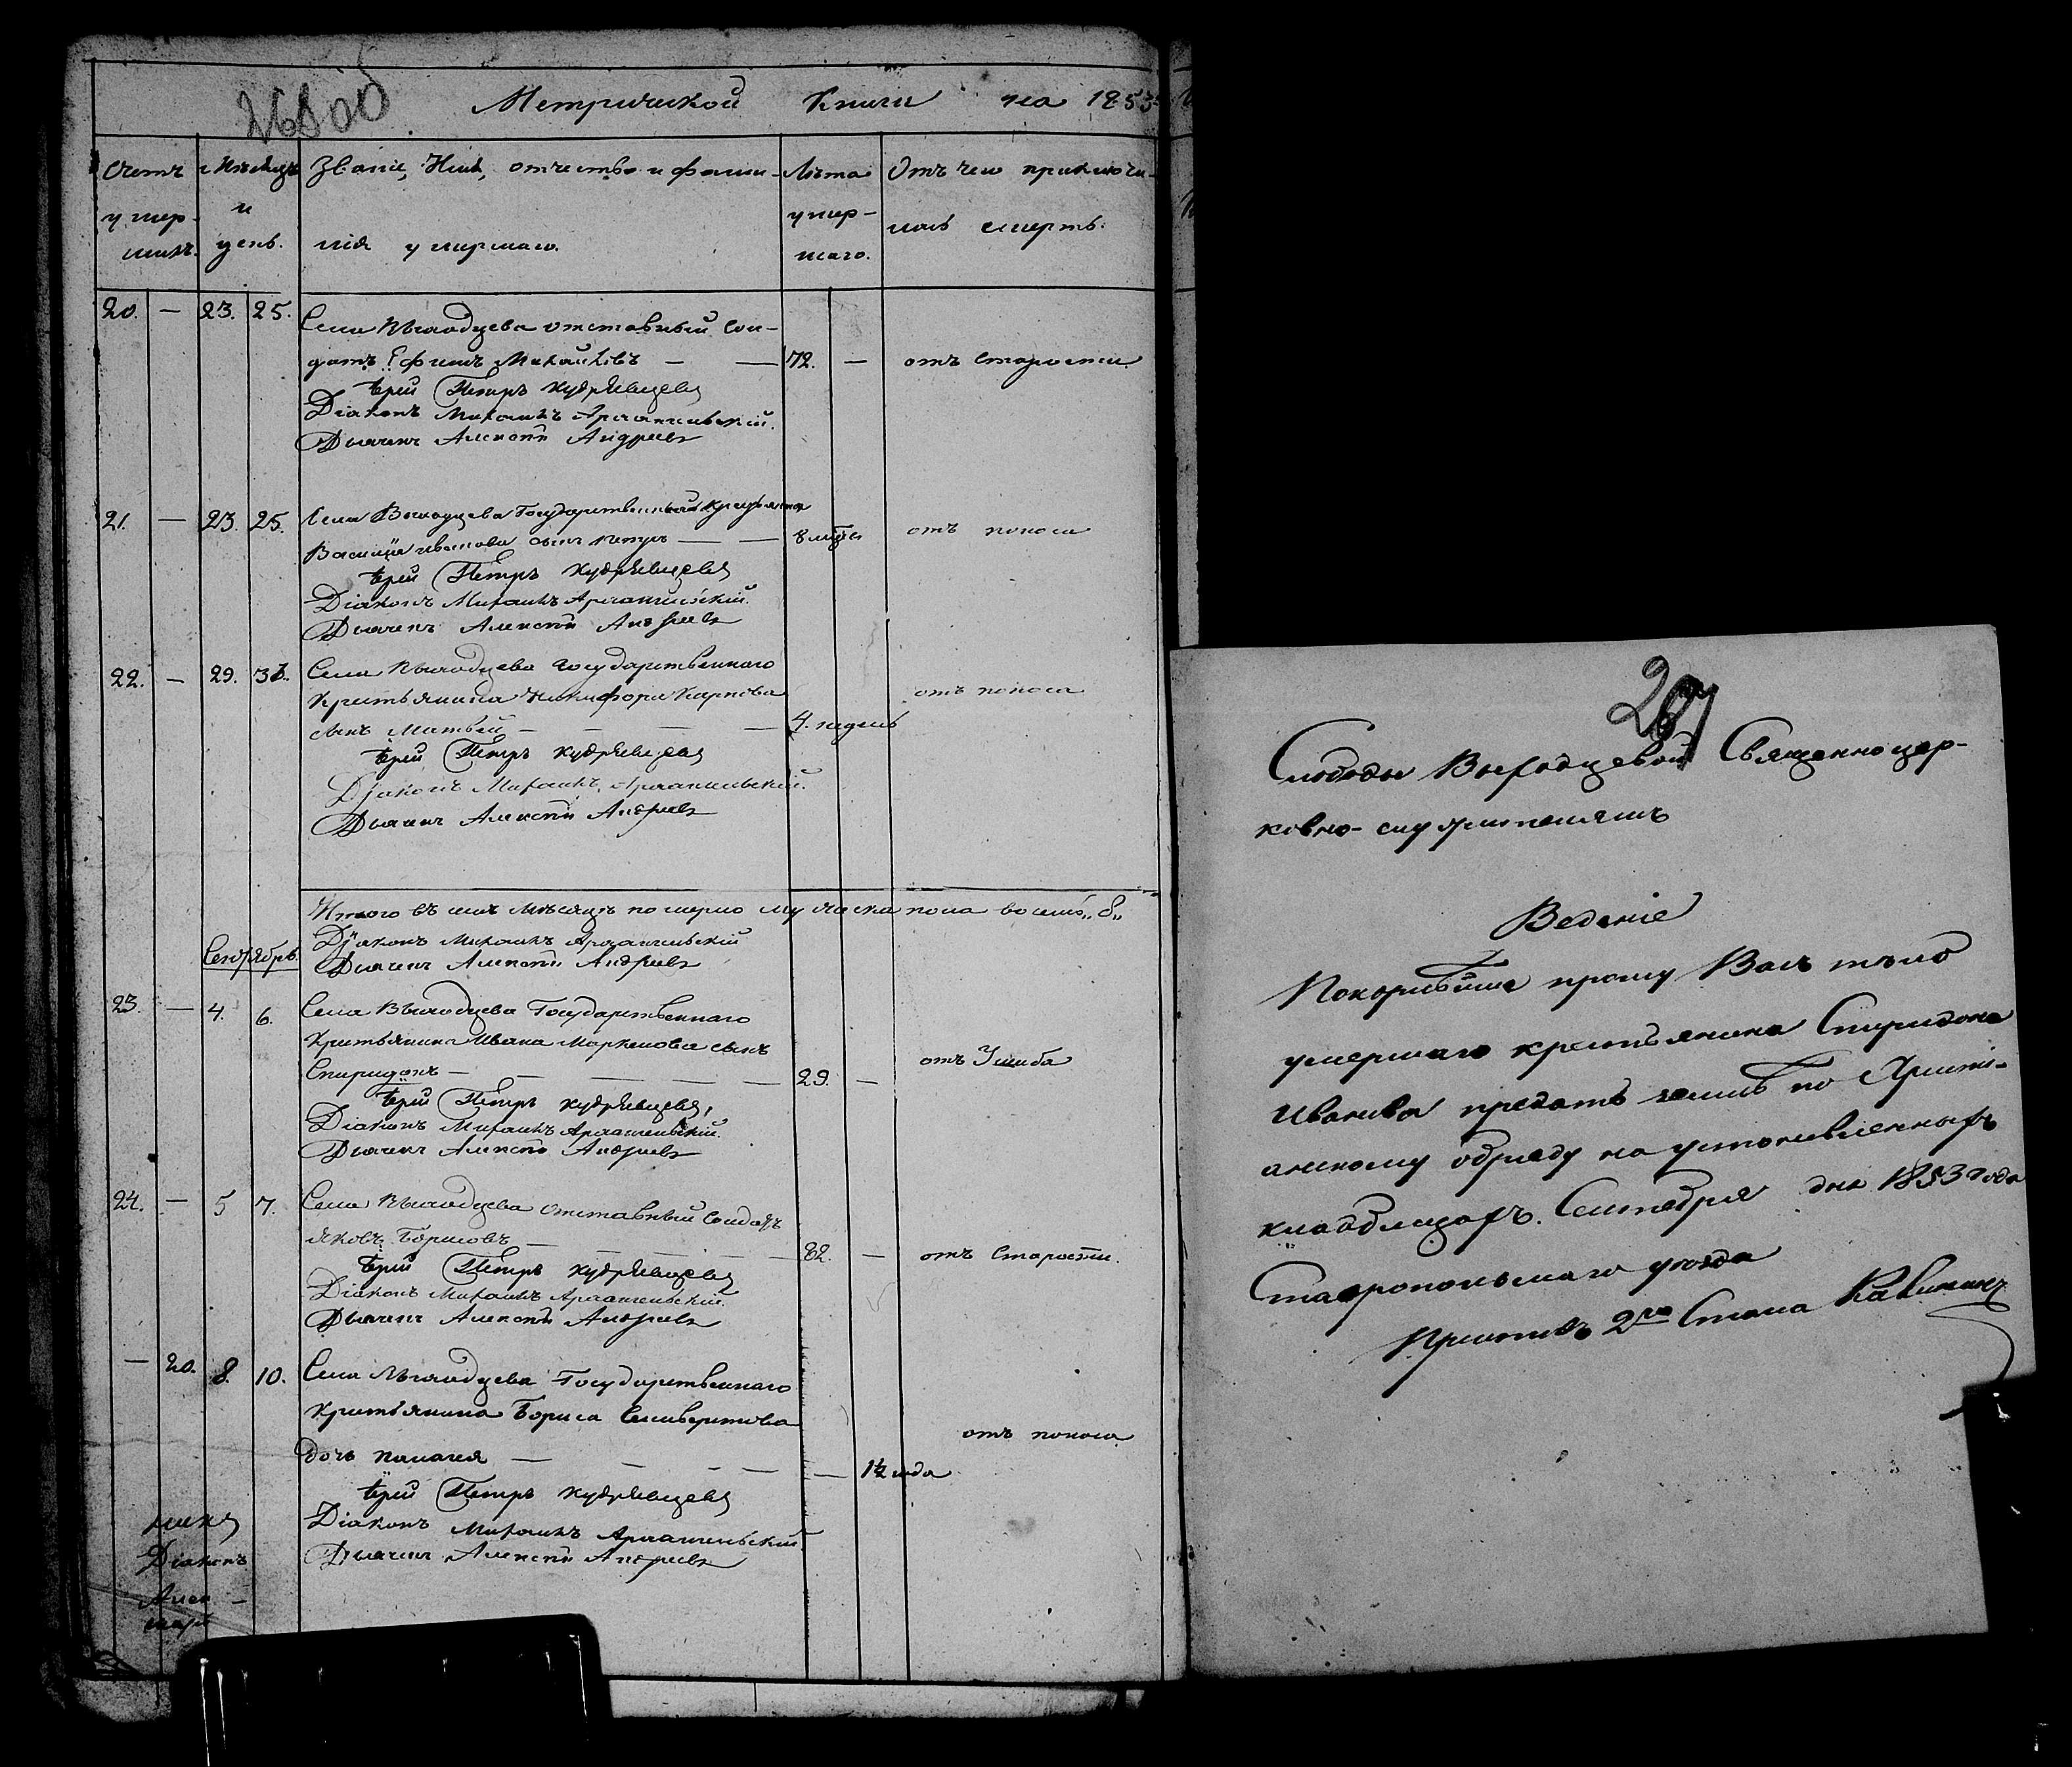 268 об
Метрической Книги на 1853
Счетъ умер- шихъ.
Мѣсяцъ и день.
Званіе, Имя, отчество и фами-
лія умершаго.
Лѣта умер- шаго.
Отъ чего приключи-
лась смерть.
20. — 23. 25. Села Выходцева отставный сол-
датъ Ефимъ Михайловъ — — 72. — отъ старости.
Іерей Петръ Кудрявцевъ
Діаконъ Михаилъ Архангельскій.
Дьячекъ Алексѣй Андреевъ
21. — 23. 25. Села Выходцева Государственнаго крестьянина
Василія Иванова сынъ Петръ — — 8 мѣсяц. отъ поноса
Іерей Петръ Кудрявцевъ
Діаконъ Михаилъ Архангельскій.
Дьячекъ Алексѣй Андреевъ
22. — 29. Села Выходцева государственнаго
Крестьянина Никифора Карпова отъ поноса
сынъ Матвѣй — — — 4. недель
Іерей Петръ Кудрявцевъ
Діаконъ Михаилъ Архангельскій.
Дьячекъ Алексѣй Андреевъ
Итого въ семъ мѣсяцѣ померло мужеска пола восемь „8„
Діаконъ Михаилъ Архангельскій
Сентябрь. Дьячекъ Алексѣй Андреевъ
23. — 4. 6. Села Выходцева Государственнаго
Крестьянина Ивана Маркелова сынъ отъ Ушиба
Спиридонъ — — — — — 29. —
Іерей Петръ Кудрявцевъ,
Діаконъ Михаилъ Архангельскій.
Дьячекъ Алексѣй Андреевъ
24. — 5 7. Села Выходцева отставный солдатъ
Яковъ Борисовъ — — — — 82 — отъ Старости.
Іерей Петръ Кудрявцевъ
Діаконъ Михаилъ Архангельскій.
Дьячекъ Алексѣй Андреевъ
— 20. 8. 10. Села Выходцева Государственнаго
Крестьянина Бориса Селиверстова отъ поноса
дочь Пелагея — — — — — 1½ года
Іерей Петръ Кудрявцевъ
Діаконъ Михаилъ Архангельскій.
Дьячекъ Алексѣй Андреевъ
Діаконъ
267
Слободы Выходцевой Священноцер-
ковно-служителямъ
Веденіе
Покорнѣйше прошу Васъ тѣло
умершаго крестьянина Спиридона
Иванова предать землѣ по Христі-
анскому обряду на установленныхъ
кладбищахъ. Сентября дня 1853 года
Ставропольскаго уѣзда
Приставъ 2го Стана